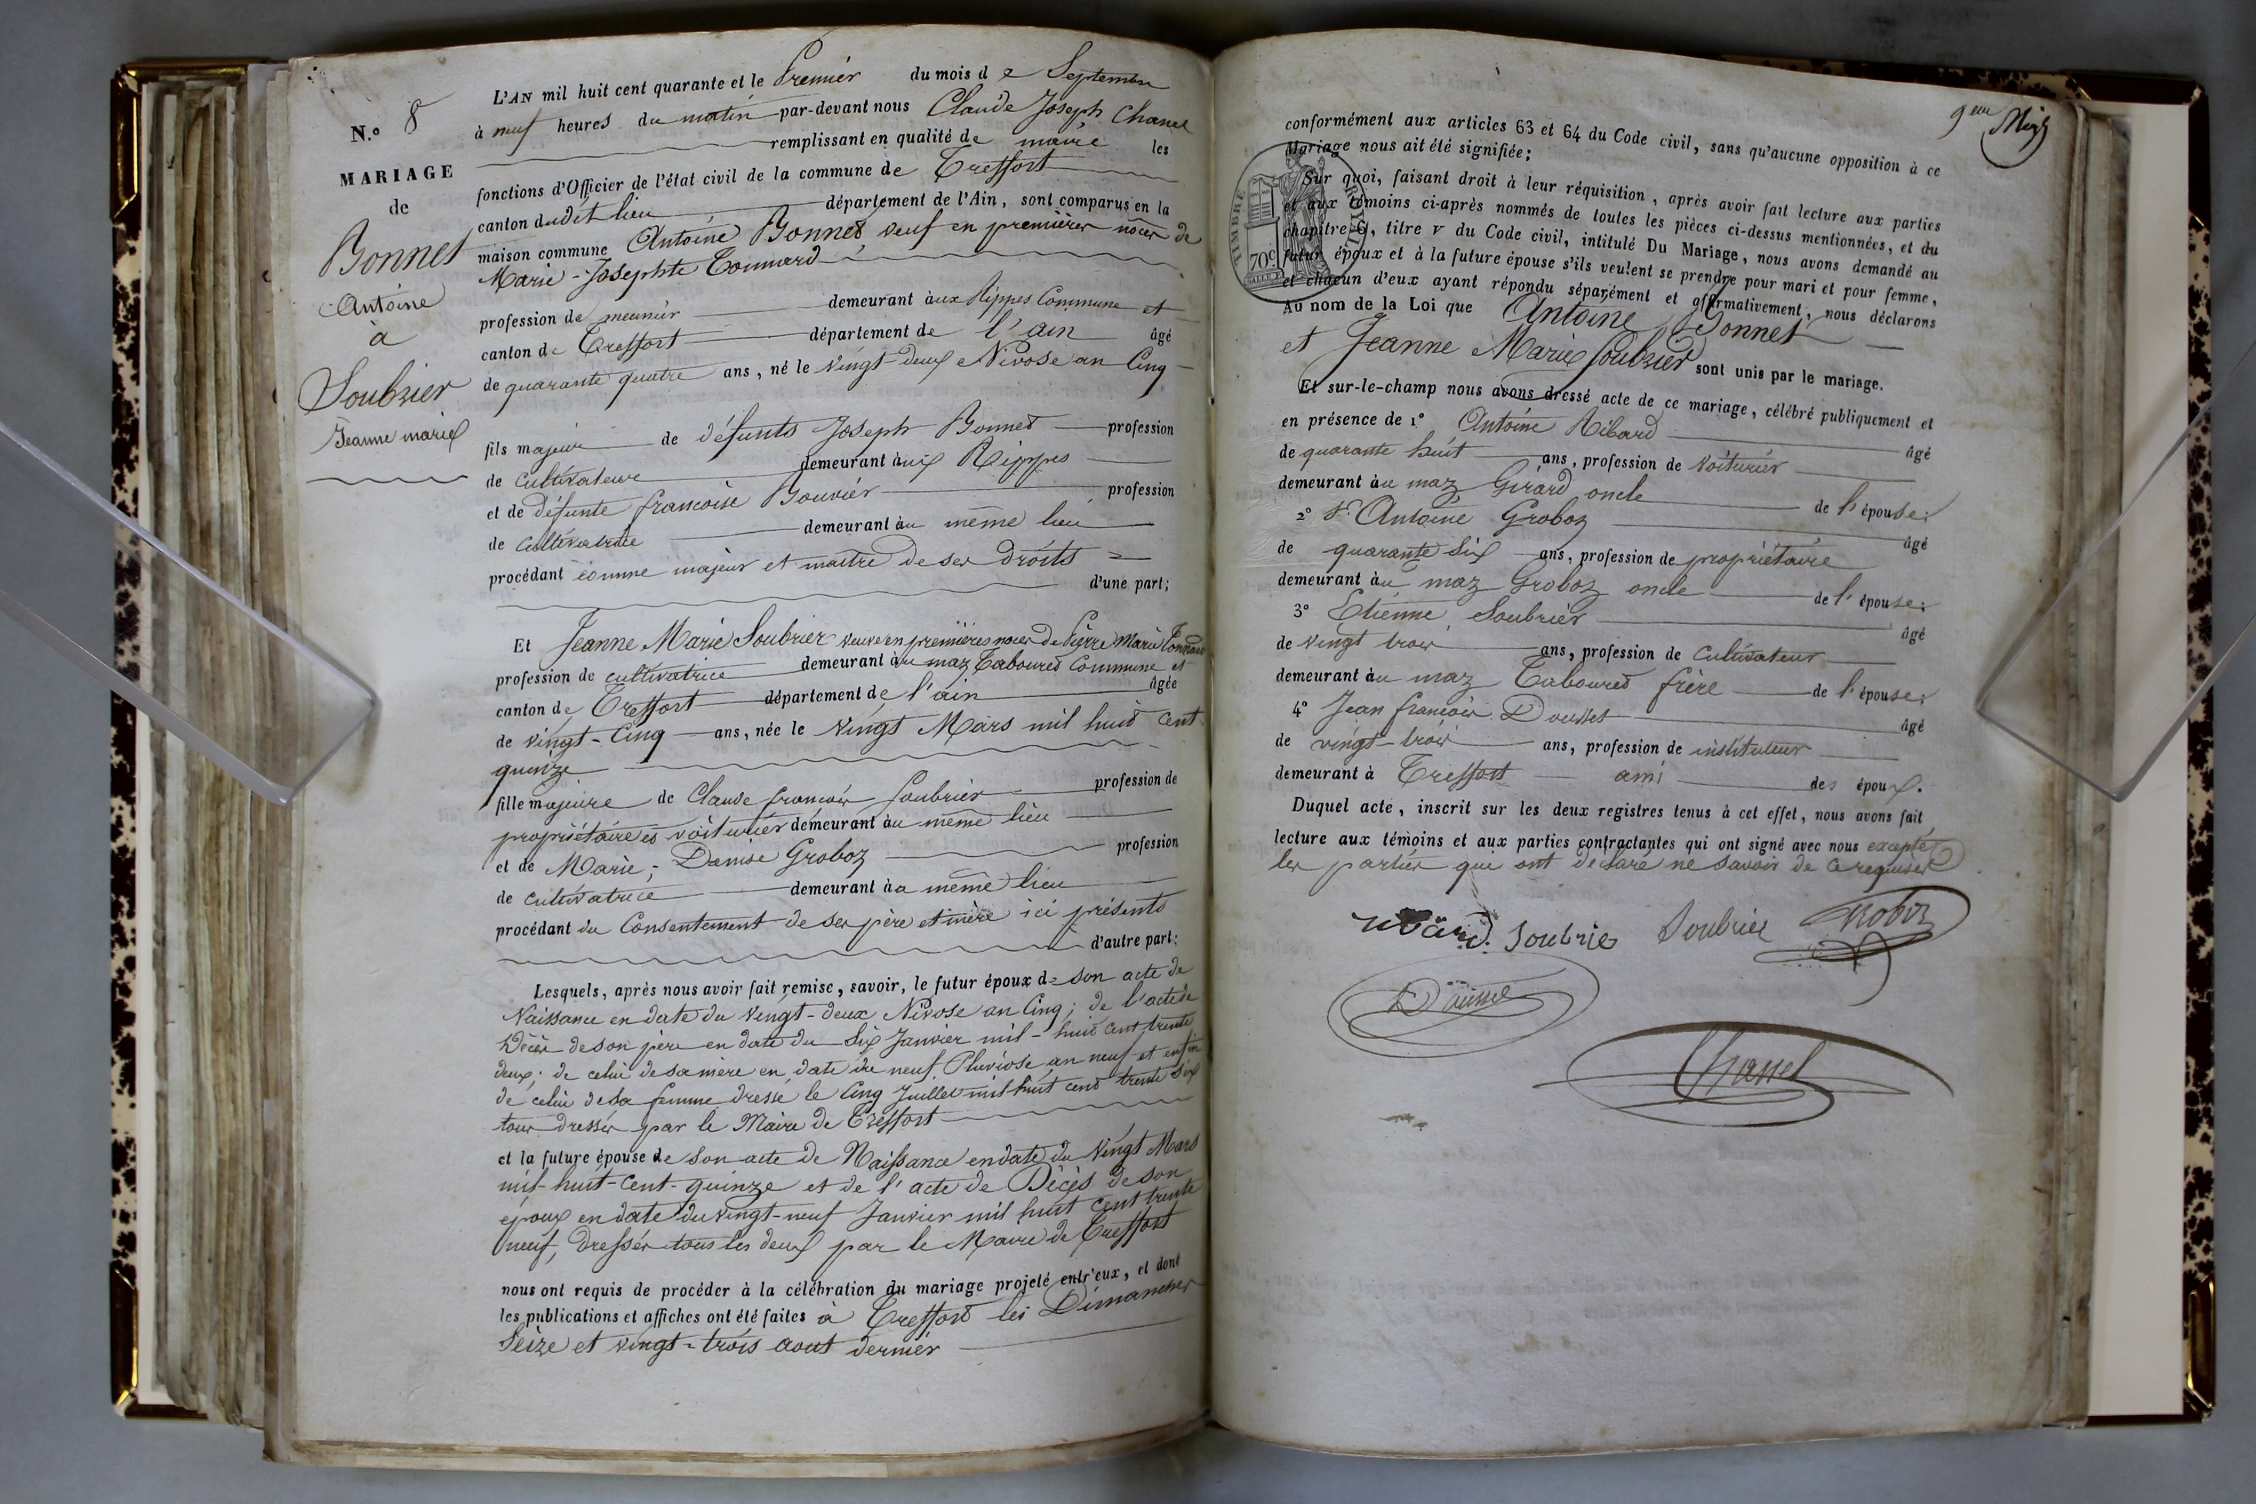 N.o 8
MARIAGE
de
Bonnet
Antoine
à
Soubrier
Jeanne marie
L'AN mil huit cent quarante et le Premier du mois de Septembre
à neuf heures du matin par-devant nous Claude Joseph Chanel
remplissant en qualité de maire les
fonctions d'Officier de l'état civil de la commune de Treffort
canton dudit lieu département de l'Ain, sont comparus en la
maison commune Antoine Bonnet veuf en premières nôces de
Marie-Josephte Tonnard
profession de meunier demeurant aux Rippes Commune et
canton de Treffort département de l'ain âgé
de quarante quatre ans, né le vingt-deux Nivose an Cinq
fils majeur de défunts Joseph Bonnet profession
de cultivateur demeurant aux Rippes
et de défunte françoise Bouvier profession
de cultivatrice demeurant au même lieu
procédant comme majeur et maitre de ses droits
d'une part;
Et Jeanne Marie Soubrier veuve en premières noces de Pierre Marie Tonnard
profession de cultivatrice demeurant au maz Tabouret Commune et
canton de Treffort département de l'ain âgée
de vingt-Cinq ans, née le vingt Mars mil huit cent
quinze
fille majeure de Claude françois Soubrier profession de
propriétaire et voiturier demeurant au même lieu
et de Marie-Denise Groboz profession
de cultivatrice demeurant au même lieu
procédant du Consentement de ses père et mère ici présents
d'autre part;
Lesquels, après nous avoir fait remise, savoir, le futur époux de son acte de
Naissance en date du vingt-deux Nivose an Cinq; de l'acte de
Décès de son père en date du Six Janvier mil-huit cent trente
deux; de celui de sa mère en date du neuf Pluviose an neuf et enfin
de celui de sa femme dressé le Cinq Juillet mil huit cent trente Six
tous dressés par le Maire de Treffort
et la future épouse de son acte de Naissance en date du Vingt Mars
mil-huit-Cent-quinze et de l'acte de Décès de son
époux en date du vingt-neuf Janvier mil huit cent trente
neuf, dressés tous les deux par le Maire de Treffort
nous ont requis de procéder à la célébration du mariage projeté entr'eux, et dont
les publications et affiches ont été faites à Treffort les Dimanches
Seize et vingt-trois aout dernier
9eme
TIMBRE ROYAL
70c
conformément aux articles 63 et 64 du Code civil, sans qu'aucune opposition à ce
Mariage nous ait été signifiée;
Sur quoi, faisant droit à leur réquisition, après avoir fait lecture aux parties
et aux témoins ci-après nommés de toutes les pièces ci-dessus mentionnées, et du
chapitre 6, titre v du Code civil, intitulé Du Mariage, nous avons demandé au
futur époux et à la future épouse s'ils veulent se prendre pour mari et pour femme,
et chacun d'eux ayant répondu séparément et affirmativement, nous déclarons
Au nom de la Loi que Antoine Bonnet
et Jeanne Marie Soubrier sont unis par le mariage.
Et sur-le-champ nous avons dressé acte de ce mariage, célébré publiquement et
en présence de 1° Antoine Ribard âgé
de quarante huit ans, profession de voiturier
demeurant au maz Girard oncle de l'épouse;
2° Antoine Groboz âgé
de quarante Six ans, profession de propriétaire
demeurant au maz Groboz oncle de l'épouse;
3° Etienne Soubrier âgé
de vingt trois ans, profession de cultivateur
demeurant au maz Tabouret frère de l'épouse;
4° Jean françois Doussel âgé
de vingt-trois ans, profession de instituteur
demeurant à Treffort ami des époux.
Duquel acte, inscrit sur les deux registres tenus à cet effet, nous avons fait
lecture aux témoins et aux parties contractantes qui ont signé avec nous excepté
les parties qui ont déclaré ne savoir de ce requises
Soubrier Soubrier Groboz
Chanel